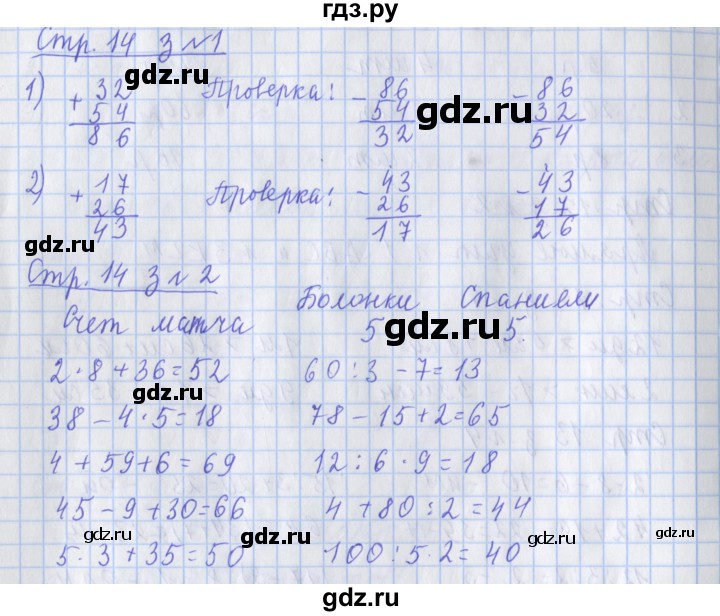 гдз.ру
Стр. 14 з №1
gdz.ru
1) + 32 54 86 Проверка: - 86 54 32 - 86 32 54
gdz.ru
gdz.ru
2) + 17 26 43 Проверка: - 43 26 17 - 43 17 26
gdz.ru
gdz.ru
gdz.ru
Стр. 14 з № 2
Счет матча Болонки Спаниели
5 gdz.ru 5.
2 · 8 + 36 = 52 60 : 3 - 7 = 13
gdz.ru
38 - 4 · 5 = 18 78 - 15 + 2 = 65
4 + 59 + 6 = 69 12 : 6 · 9 = 18
45 - 9 + 30 = 66 4 + 80 : 2 = 44
gdz.ru gdz.ru gdz.ru
5 · 3 + 35 = 50 100 : 5 · 2 = 40
gdz.ru gdz.ru
gdz.ru